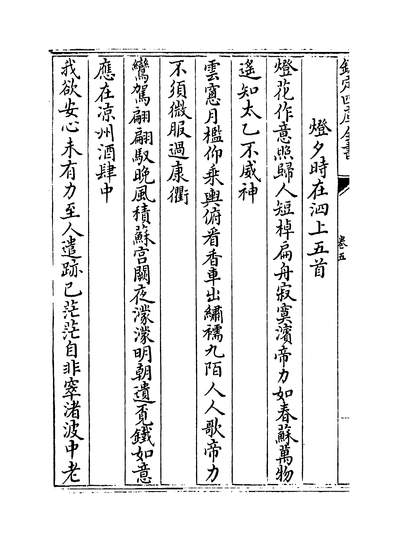 欽定四庫全書
卷五
燈夕時在泗上五首
燈花作意照歸人短棹扁舟寂寞濱帝力如春蘇萬物
遙知太乙不威神
雲窻月檻仰乗輿俯看香車出繡襦九陌人人歌帝力
不須微服過康衢
鸞駕翩翩馭晚風積蘇宫闕夜濛濛明朝遺覓鐵如意
應在凉州酒肆中
我欲安心未有力至人遣跡已茫茫自非寧渚波中老